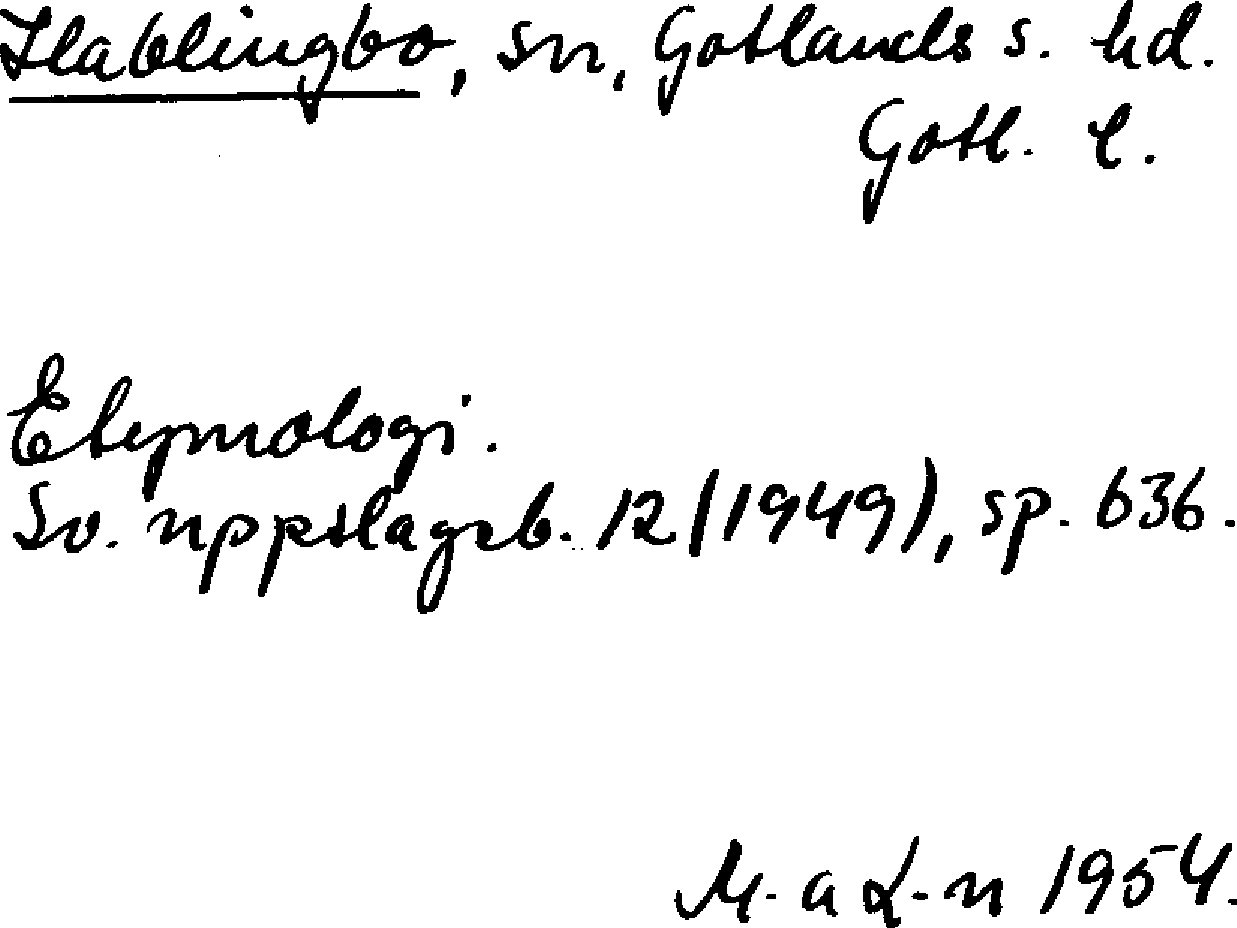 Hablingbo, sn, Gotlands s. hd.
Gotl. l.
Etymologi.
Sv. uppslagsb. 12 (1949), sp. 636.
M. a L-n 1954.